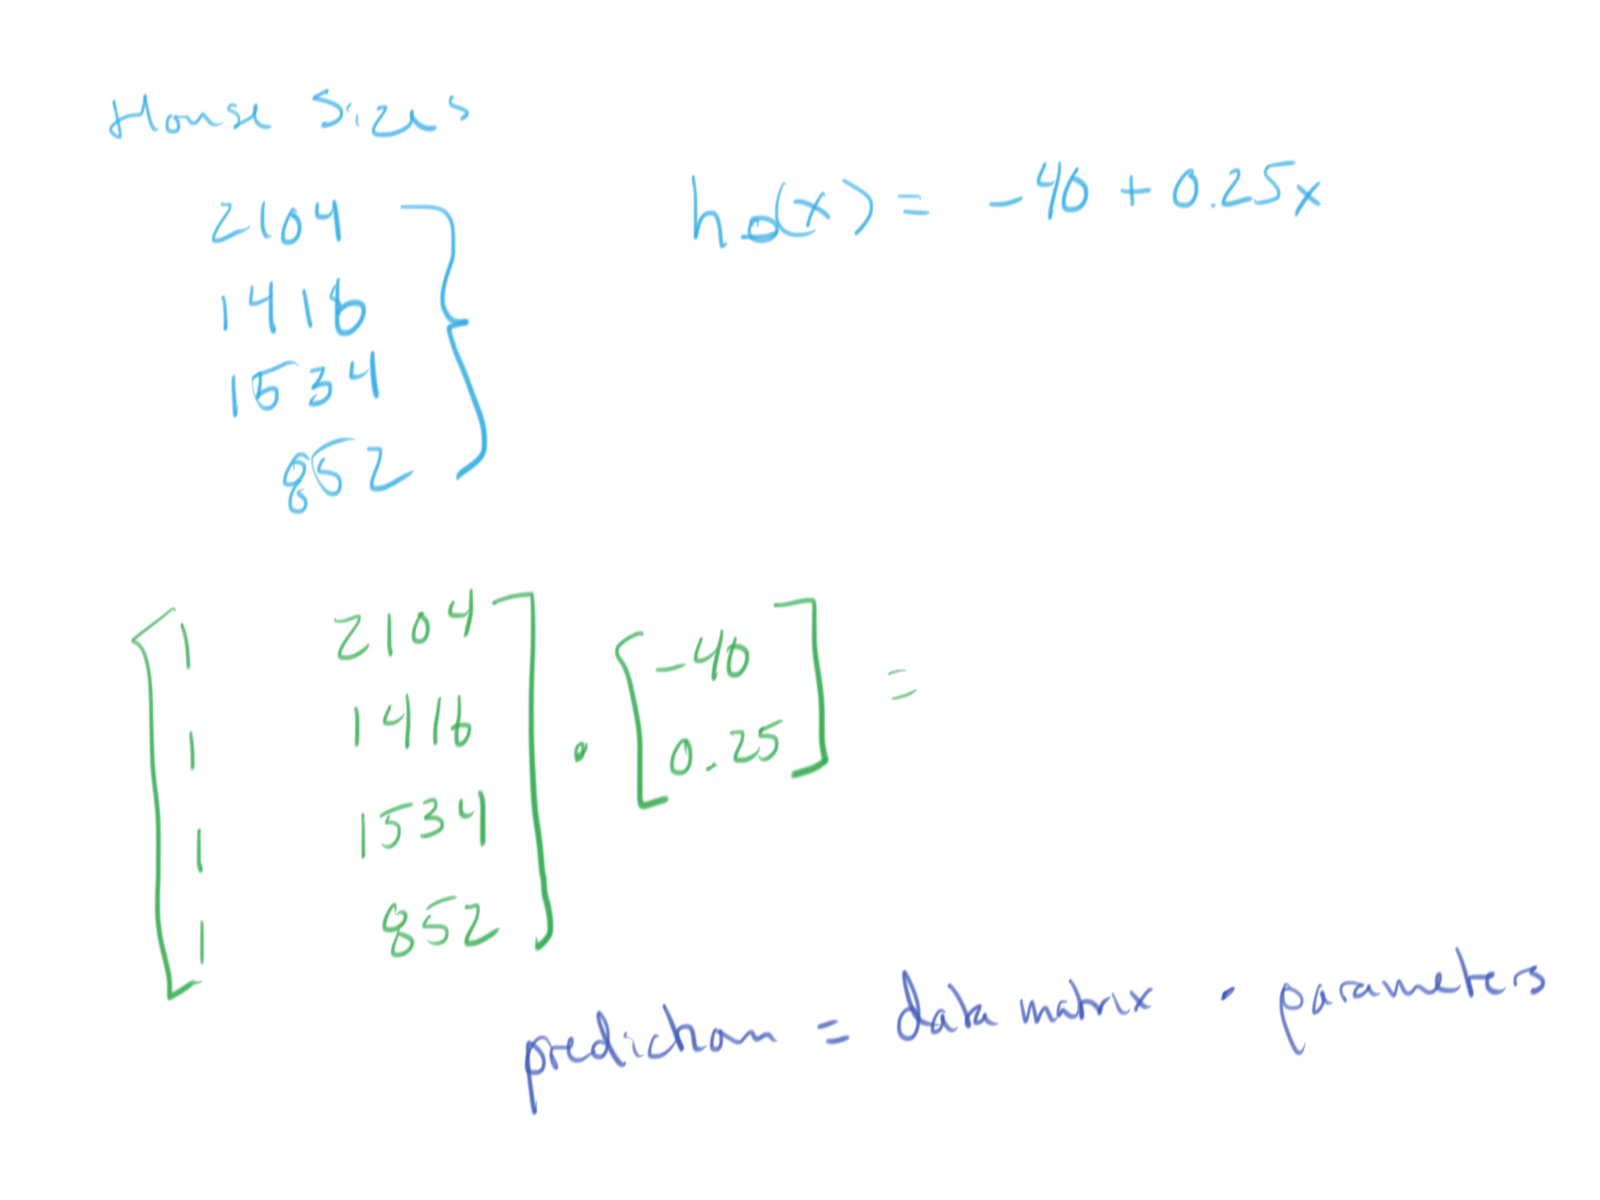 House Sizes
2104
1416
1534
852
hθ(x) = -40 + 0.25x
1 2104
1 1416
1 1534
1 852
· [-40
0.25] =
prediction = data matrix · parameters